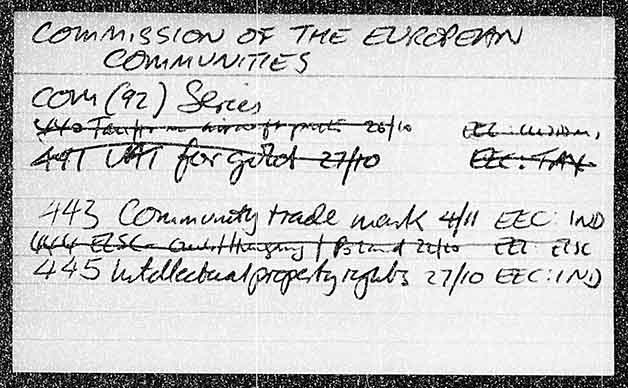 COMMISSION OF THE EUROPEAN
COMMUNITIES
COM (92) Series
26/10
441 VAT for gold 27/10 EEC: TAX
443 Community trade mark 4/11 EEC: IND
444 ECSC Hungary / Poland EEC: ECSC
445 Intellectual property rights 27/10 EEC: IND